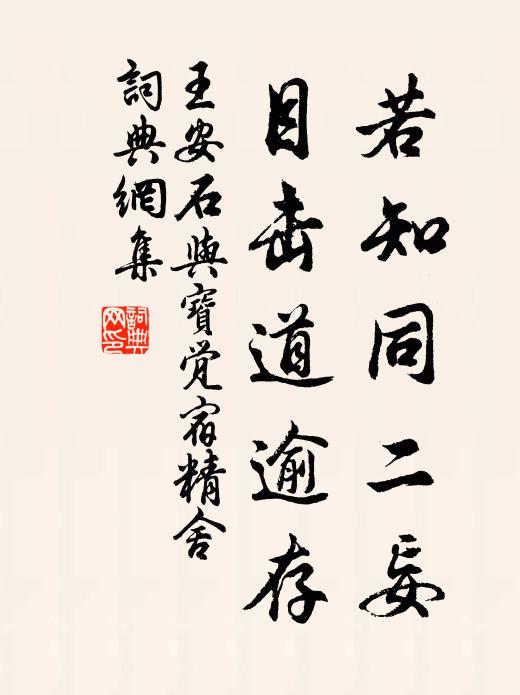 若知同二妄
目击道逾存
王安石與寶覺宿精舍
詞典網集
詞典网印